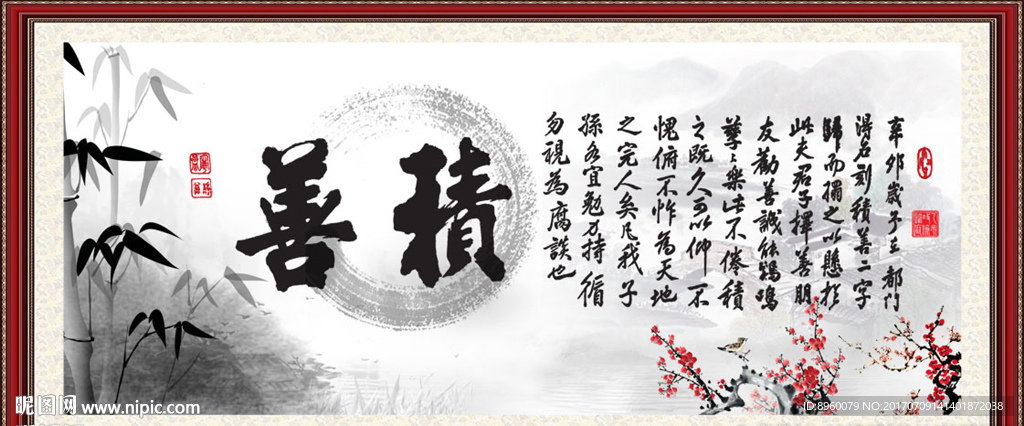 辛卯歲予在都門
得名刻積善二字
歸而搨之以懸於
此夫君子擇善朋
友勸善誡能鷄鳴
孳々樂此不倦積
之既久可以仰不
愧俯不怍為天地
之完人矣凡我子
孫各宜勉力持循
勿視為腐談也
積善
昵图网 www.nipic.com
ID:8960079 NO:20170709141401872038